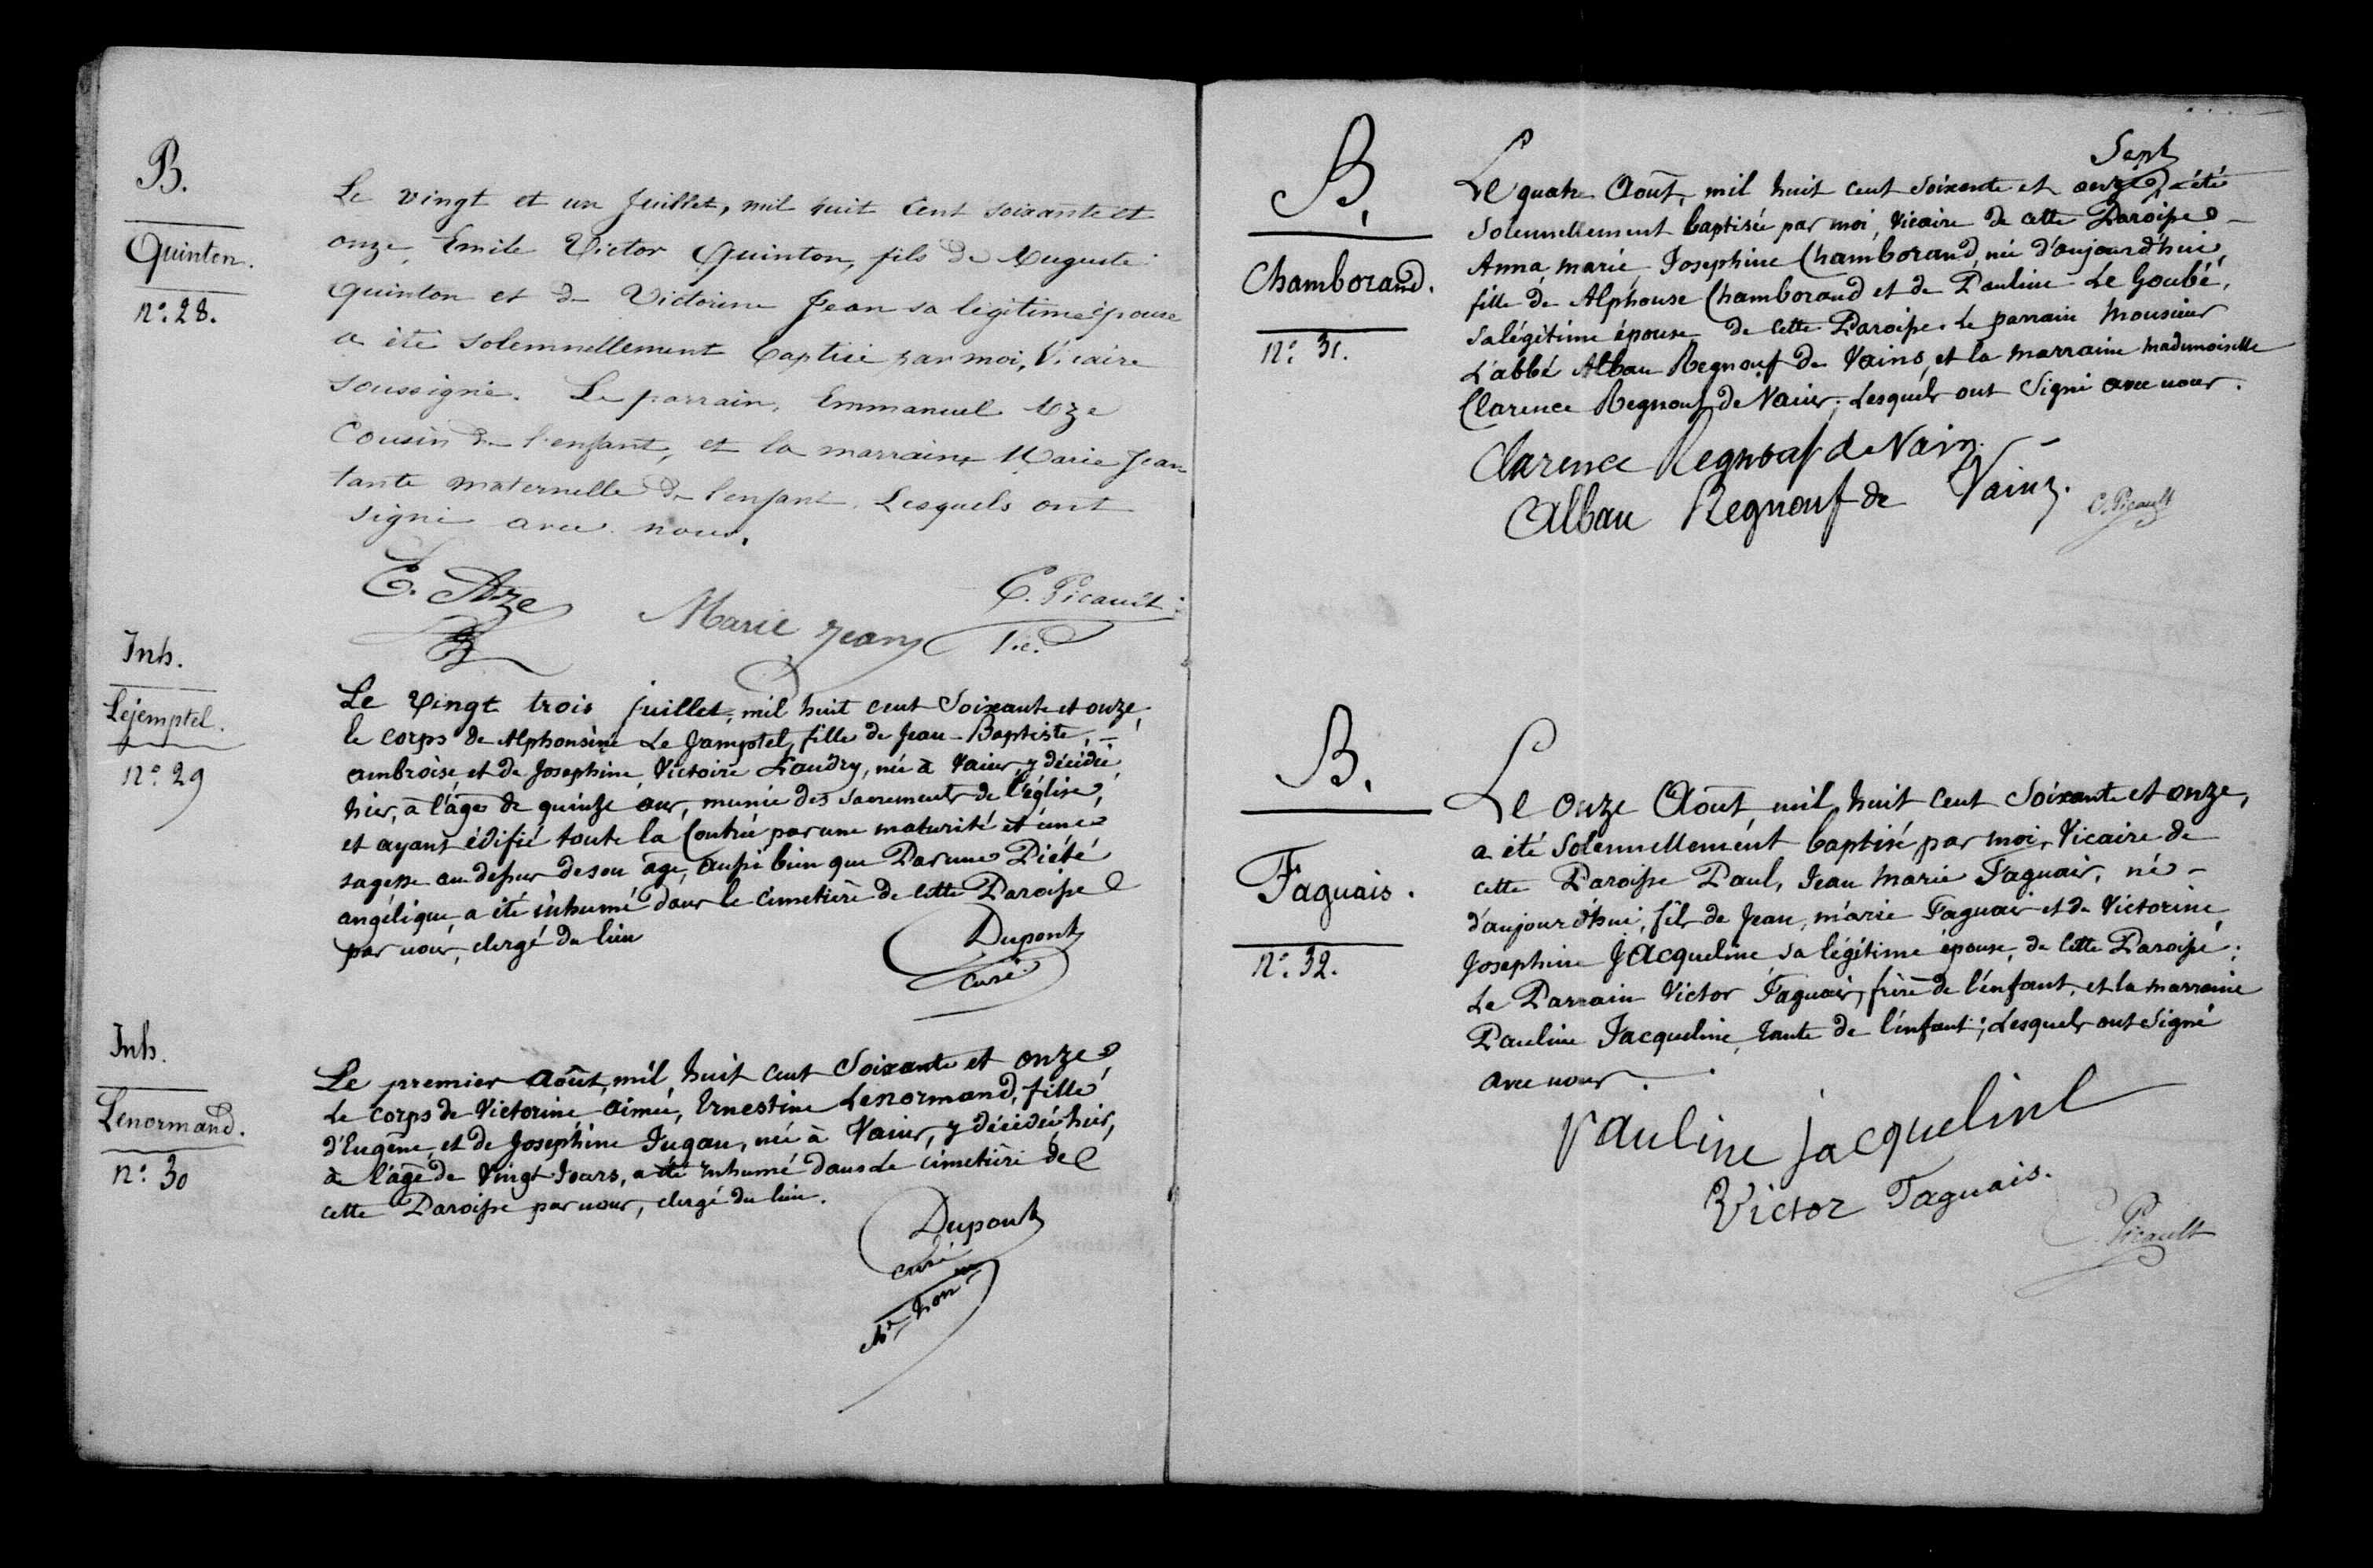 B.
Quinton.
n°. 28.
Le vingt et un Juillet, mil huit cent soixante et
onze, Emile Victor Quinton, fils de Auguste
Quinton et de Victorine Jean sa légitime épouse
a été solemnellement baptisé par moi, Vicaire
soussigné. Le parrain, Emmanuel Aze
Cousin de l'enfant, et la marraine Marie Jean
tante maternelle de l'enfant. Lesquels ont
signé avec nous.
E. Aze
Marie Jean
C. Picault
Vic.
Inh.
Lejemptel.
n°. 29
Le vingt trois juillet, mil huit cent Soixante et onze,
le corps de Alphonsine Le Jamptel, fille de Jean-Baptiste,
ambroise, et de Josephine Victoire Landry, née à Vains, y décédée
hier, à l'âge de quinze ans, munie des sacrements de l'église,
et ayant édifié toute la Contrée par une maturité et une
sagesse au dessus de son âge, aussi bien que Par une Piété
angélique, a été inhumé dans le cimetière de cette Paroisse
par nous, clergé du lieu
Dupont
curé
Inh.
Lenormand.
n°. 30
Le premier Août, mil huit cent Soixante et onze,
Le corps de Victorine, aimée, Ernestine Lenormand, fille
d'Eugène, et de Josephine Jugan, née à Vains, y décédée hier,
à l'âge de Vingt Jours, a été inhumé dans Le cimetière de
cette Paroisse par nous, clergé du lieu.
Dupont
curé
B.
Chamborand.
n°. 31.
Sept
Le quatre Août, mil huit cent soixante et onze, a été
Solennellement baptisée par moi, Vicaire de cette Paroisse
Anna, marie, Josephine Chamborand, née d'aujourd'hui,
fille de Alphonse Chamborand et de Pauline Le Goubé,
sa légitime épouse de cette Paroisse. Le parrain Monsieur
L'abbé Alban Regnouf de Vains, et la marraine mademoiselle
Clarence Regnouf de Vains; Lesquels ont Signé avec nous.
Clarence Regnouf de Vains
Alban Regnouf de Vains.
C. Picault
B.
Faguais.
n°. 32.
Le onze Août, mil huit cent Soixante et onze,
a été Solennellement baptisé par moi, Vicaire de
cette Paroisse Paul, Jean Marie Faguais, né
d'aujourd'hui, fils de Jean, marie Faguais et de Victorine
Josephine Jacqueline sa légitime épouse, de cette Paroisse;
Le Parrain Victor Faguais, frère de l'enfant, et la marraine
Pauline Jacqueline, tante de l'enfant; Lesquels ont Signé
avec nous.
Pauline Jacqueline
Victor Faguais.
C. Picault